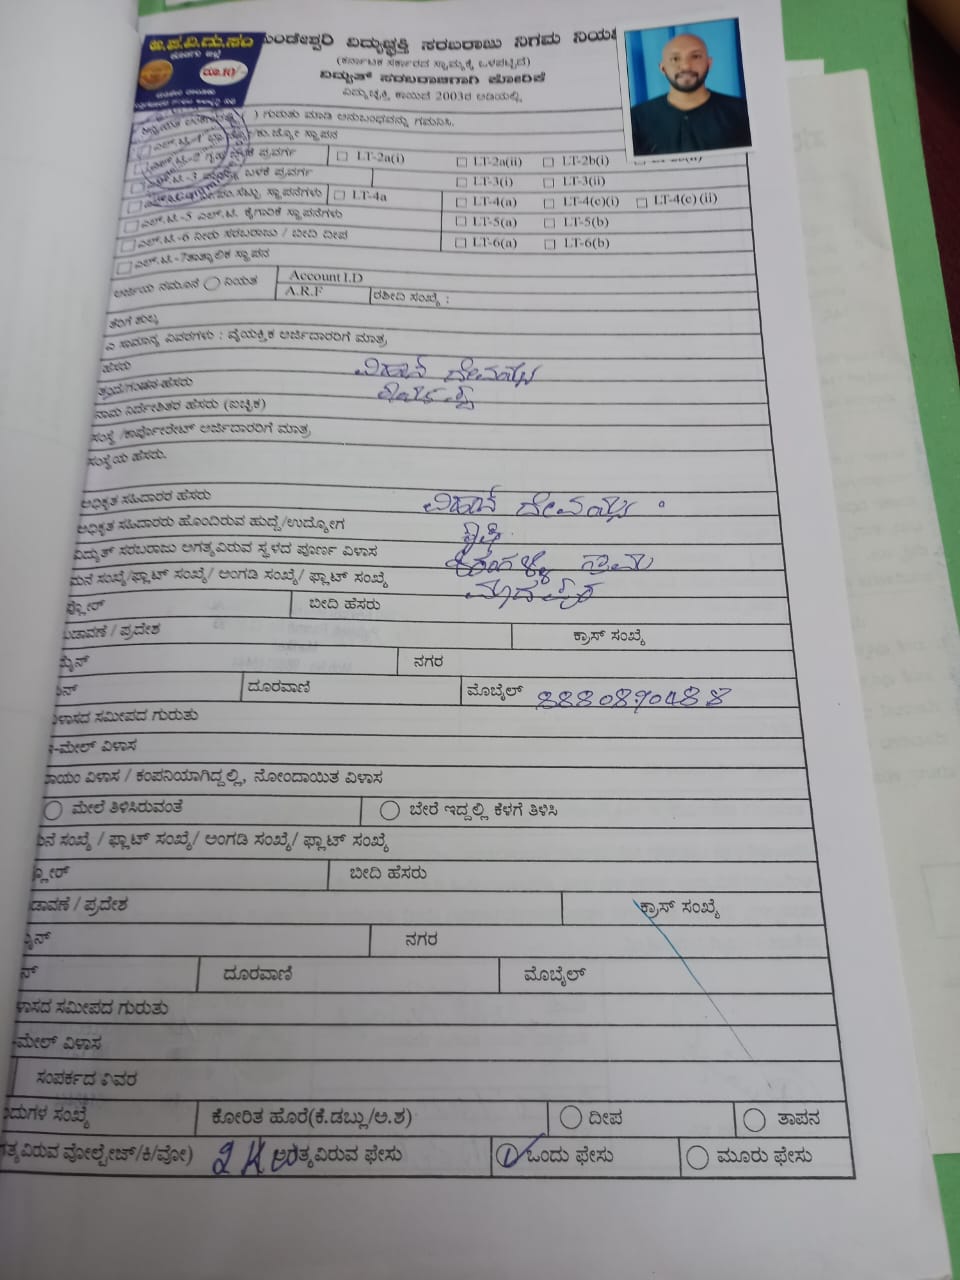 ಅ.ಪ.ವಿ.ಮ.ಸಂ
ರೂ.10/-
ವಿದ್ಯುಚ್ಛಕ್ತಿ ಸರಬರಾಜು ನಿಗಮ
(ಕರ್ನಾಟಕ ಸರ್ಕಾರದ ಸ್ವಾಮ್ಯಕ್ಕೆ ಒಳಪಟ್ಟಿದೆ)
ವಿದ್ಯುತ್ ಸರಬರಾಜಿಗಾಗಿ ಕೋರಿಕೆ
ವಿದ್ಯುಚ್ಛಕ್ತಿ ಕಾಯಿದೆ 2003ರ ಅಡಿಯಲ್ಲಿ
( ) ಗುರುತು ಮಾಡಿ ಅನುಬಂಧವನ್ನು ಗಮನಿಸಿ.
ಸ್ಥಾಪನ
ಬಳಕೆ ಪ್ರವರ್ಗ LT-2a(i) LT-2a(ii) LT-2b(i)
ಬಳಕೆ ಪ್ರವರ್ಗ LT-3(i) LT-3(ii)
ಸ್ಥಾಪನೆಗಳು LT-4a LT-4(a) LT-4(c)(i) LT-4(c)(ii)
ಎಲ್.ಟಿ.-5 ಎಲ್.ಟಿ. ಕೈಗಾರಿಕೆ ಸ್ಥಾಪನೆಗಳು LT-5(a) LT-5(b)
ಎಲ್.ಟಿ.-6 ನೀರು ಸರಬರಾಜು / ಬೀದಿ ದೀಪ LT-6(a) LT-6(b)
ಎಲ್.ಟಿ.-7ತಾತ್ಕಾಲಿಕ ಸ್ಥಾಪನ
ಅರ್ಜಿಯ ನಮೂನೆ ನಿಯತ Account I.D
A.R.F ರಶೀದಿ ಸಂಖ್ಯೆ :
ತೆರಿಗೆ ಶುಲ್ಕ
ಎ ಸಾಮಾನ್ಯ ವಿವರಗಳು : ವೈಯಕ್ತಿಕ ಅರ್ಜಿದಾರರಿಗೆ ಮಾತ್ರ
ಹೆಸರು ವಿಹಾನ್ ದೇವಯ್ಯ
ತಂದೆ/ಗಂಡನ-ಹೆಸರು
ನಾಮ ನಿರ್ದೇಶಿತರ ಹೆಸರು (ಐಚ್ಛಿಕ)
ಸಂಸ್ಥೆ /ಕಾರ್ಪೋರೇಟ್ ಅರ್ಜಿದಾರರಿಗೆ ಮಾತ್ರ
ಸಂಸ್ಥೆಯ ಹೆಸರು.
ಅಧಿಕೃತ ಸಹಿದಾರರ ಹೆಸರು ವಿಹಾನ್ ದೇವಯ್ಯ
ಅಧಿಕೃತ ಸಹಿದಾರರು ಹೊಂದಿರುವ ಹುದ್ದೆ/ಉದ್ಯೋಗ ಕೃಷಿ
ವಿದ್ಯುತ್ ಸರಬರಾಜು ಅಗತ್ಯವಿರುವ ಸ್ಥಳದ ಪೂರ್ಣ ವಿಳಾಸ ಗ್ರಾಮ
ಮನೆ ಸಂಖ್ಯೆ/ಫ್ಲಾಟ್ ಸಂಖ್ಯೆ/ ಅಂಗಡಿ ಸಂಖ್ಯೆ/ ಫ್ಲಾಟ್ ಸಂಖ್ಯೆ ಮಾದಪುರ
ಫ್ಲೋರ್ ಬೀದಿ ಹೆಸರು
ಬಡಾವಣೆ / ಪ್ರದೇಶ ಕ್ರಾಸ್ ಸಂಖ್ಯೆ
ಮೈನ್ ನಗರ
ಪಿನ್ ದೂರವಾಣಿ ಮೊಬೈಲ್ 8880890488
ವಿಳಾಸದ ಸಮೀಪದ ಗುರುತು
ಇ-ಮೇಲ್ ವಿಳಾಸ
ಖಾಯಂ ವಿಳಾಸ / ಕಂಪನಿಯಾಗಿದ್ದಲ್ಲಿ, ನೋಂದಾಯಿತ ವಿಳಾಸ
ಮೇಲೆ ತಿಳಿಸಿರುವಂತೆ ಬೇರೆ ಇದ್ದಲ್ಲಿ ಕೆಳಗೆ ತಿಳಿಸಿ
ಮನೆ ಸಂಖ್ಯೆ / ಫ್ಲಾಟ್ ಸಂಖ್ಯೆ/ ಅಂಗಡಿ ಸಂಖ್ಯೆ/ ಫ್ಲಾಟ್ ಸಂಖ್ಯೆ
ಫ್ಲೋರ್ ಬೀದಿ ಹೆಸರು
ಬಡಾವಣೆ / ಪ್ರದೇಶ ಕ್ರಾಸ್ ಸಂಖ್ಯೆ
ಮೈನ್ ನಗರ
ಪಿನ್ ದೂರವಾಣಿ ಮೊಬೈಲ್
ವಿಳಾಸದ ಸಮೀಪದ ಗುರುತು
ಇ-ಮೇಲ್ ವಿಳಾಸ
ಸಂಪರ್ಕದ ವಿವರ
ಸಂಖ್ಯೆ ಕೋರಿತ ಹೊರೆ(ಕೆ.ಡಬ್ಲು/ಅ.ಶ) ದೀಪ ತಾಪನ
ಅಗತ್ಯವಿರುವ ವೋಲ್ಟೇಜ್/ಕಿ/ವೋ) 2 K ಅಗತ್ಯವಿರುವ ಫೇಸು ಒಂದು ಫೇಸು ಮೂರು ಫೇಸು